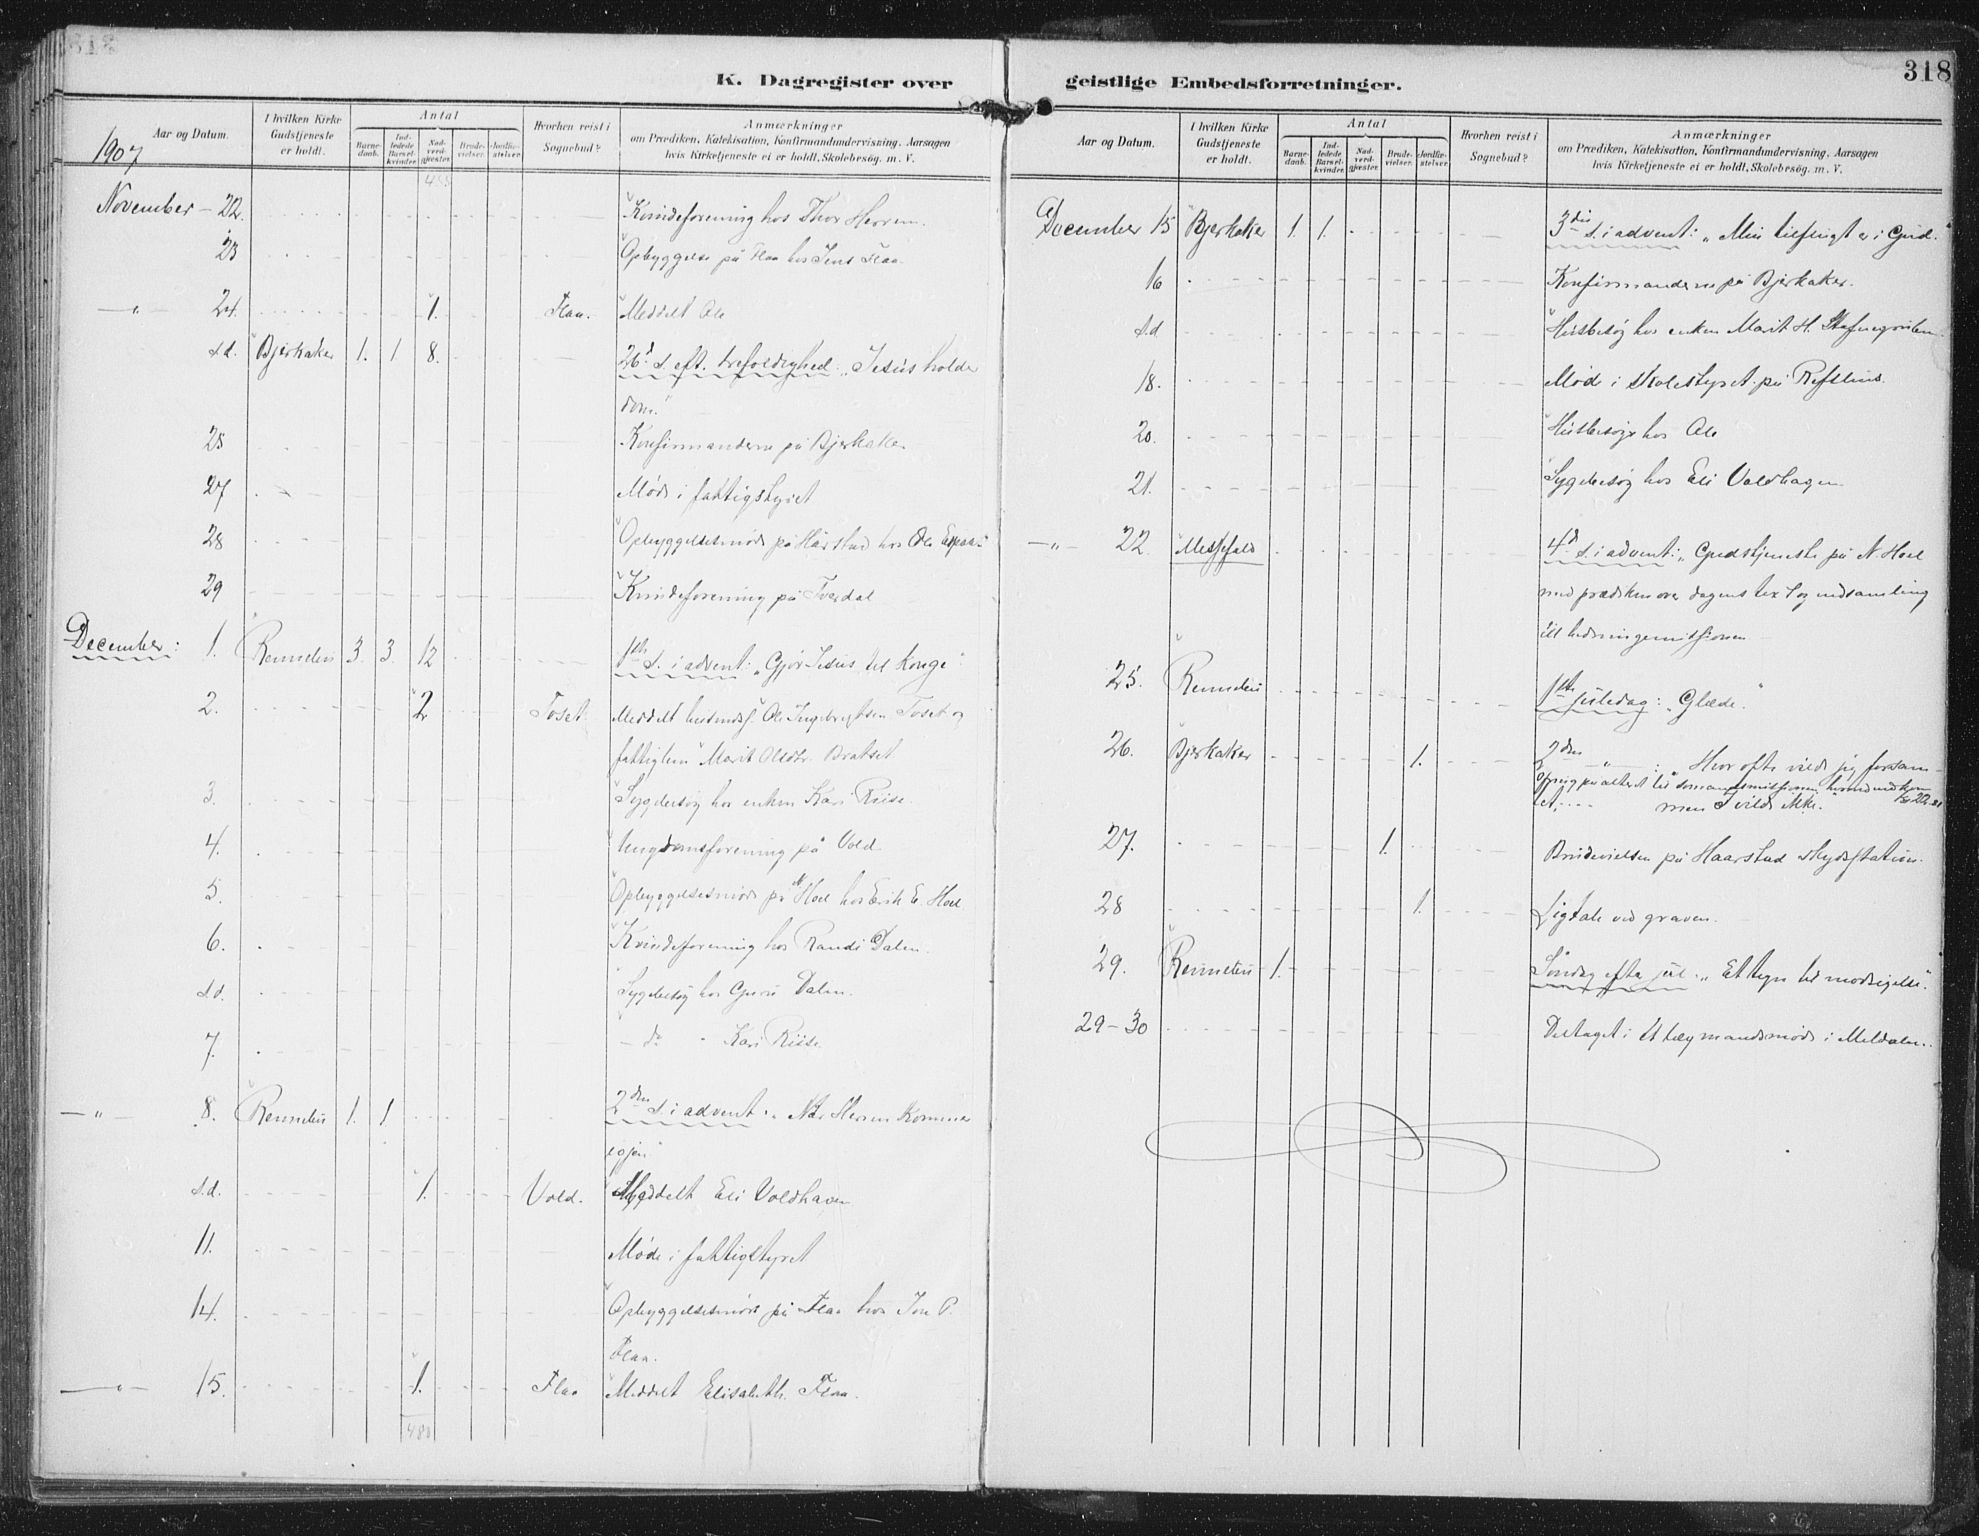 K. Dagregister over
Aar og Datum.
I hvilken Kirke Gudstjeneste er holdt.
Antal
Barne-daab.
Ind-ledede Barsel-kvinder.
Nad-verd-gjester.
Brude-vielser.
Jordfæ-stelser.
Hvorhen reist i Sognebud?
Anmærkninger
om Prædiken, Katekisation, Konfirmandundervisning, Aarsagen
hvis Kirketjeneste ei er holdt, Skolebesøg. m. V.
1907
November - 22. Kvindeforening hos Thor Herrem.
23 Opbyggelse på Flaa hos Flaa
24. 1. Flaa. Meddelt Ole
s.d. Bjerkaker 1. 1 8. 26d S. eft. trefoldighed: "Jesus holder
dom."
Konfirmanderne på Bjerkaker
27 Møde i fattigstyret
28 Opbyggelsesmøde på Hårstad hos Ole
29 Kvindeforening på Tverdal
December: 1. Rennebu 3. 3. 12 1ste S. i advent: "Gjør Jesus til Konge".
2. 2 Toset. Meddelt Ole Ingebrigtsen Toset og
Marit Olsdtr. Bratset.
3. Sygebesøg hos enken Kari Riise.
4. Ungdomsforening på Vold
5. Opbyggelsesmøde på N. Hoel hos Erik E. Hoel
6. Kvindeforening hos Randi Dalen.
s.d. Sygebesøg hos Guru Dalen.
7. - do " Kari Riise.
8. Rennebu 1. 1 2den S. i advent: "Når Herren kommer
igjen."
s.d. 1. Vold. Meddelt Eli Voldhaven
11. Møde i fattigstyret
14. Opbyggelsesmøde på Flaa hos Jon P.
Flaa.
15. 1. Flaa Meddelt Elisabeth Flaa.
480
geistlige Embedsforretninger.
318
Aar og Datum.
I hvilken Kirke Gudstjeneste er holdt.
Antal
Barne-daab.
Ind-ledede Barsel-kvinder.
Nad-verd-gjester.
Brude-vielser.
Jordfæ-stelser.
Hvorhen reist i Sognebud?
Anmærkninger
om Prædiken, Katekisation, Konfirmandundervisning, Aarsagen
hvis Kirketjeneste ei er holdt, Skolebesøg. m. V.
December 15 Bjerkaker 1. 1. 3die S. i advent: "Min tilflugt er i Gud."
16 Konfirmanderne på Bjerkaker.
s.d Husbesøg hos enken Marit H.
18. Møde i skolestyret på
20. Husbesøg hos Ole
21. Sygebesøg hos Eli Voldhagen
22. Messefald 4d S. i advent: "Gudstjeneste på N. Hoel
med prædiken over dagens text og indsamling
til hedningemissionen
25. Rennebu 1ste juledag: "Glæde."
26. Bjerkaker 1. 2den - " - : "Hvor ofte vilde jeg forsam-
Ofring på alteret til sømandsmissionen, hvorved indkom
let,... men I vilde ikke."
27. 1. Brudevielsen på Haarstad skydsstation.
28 1. Ligtale ved graven.
29. Rennebu 1. Søndag efter jul: "Et tegn til modsigelse".
29-30 Deltaget i et lægmandsmøde i Meldalen.